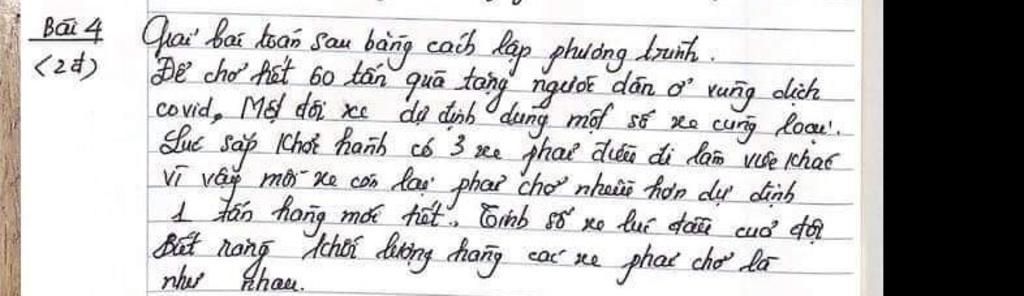 Bài 4 Giải bài toán sau bằng cách lập phương trình.
(2đ) Để chở hết 60 tấn quà tặng người dân ở vùng dịch
covid, Một đội xe dự định dùng một số xe cùng loại.
Lúc sắp khởi hành có 3 xe phải điều đi làm việc khác
vì vậy mỗi xe còn lại phải chở nhiều hơn dự định
1 tấn hàng mới hết. Tính số xe lúc đầu của đội
Biết rằng khối lượng hàng các xe phải chở là
như nhau.